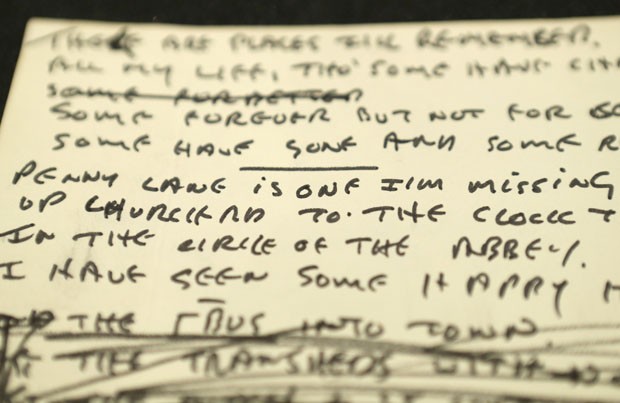 THERE ARE PLACES I'LL REMEMBER,
ALL MY LIFE, THO' SOME HAVE
SOME FOR BETTER
SOME FOREVER BUT NOT FOR
SOME HAVE GONE AND SOME
PENNY LANE is ONE I'M missing
UP CHURCH RD TO THE CLOCK T
IN THE CIRCLE OF THE ABBEY.
I HAVE SEEN SOME HAPPY H
THE BUS INTO TOWN
THE TRAMSHEDS WITH